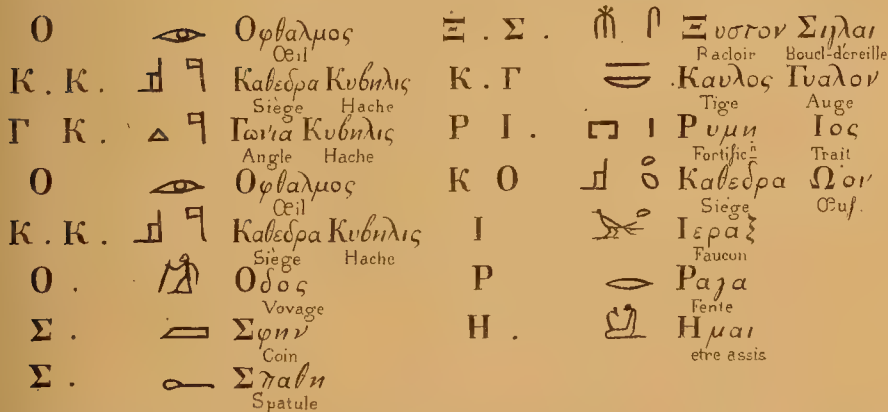 Ο Οφθαλμος
Œil
Κ. Κ. Καθεδρα Κυβηλις
Siège Hache
Γ Κ. Γωνια Κυβηλις
Angle Hache
Ο Οφθαλμος
Œil
Κ. Κ. Καθεδρα Κυβηλις
Siège Hache
Ο. Οδος
Voyage
Σ. Σφην
Coin
Σ. Σπαθη
Spatule
Ξ. Σ. Ξυστον Σιγλαι
Racloir Boucl-d'oreille
Κ. Γ Καυλος Γυαλον
Tige Auge
Ρ Ι. Ρυμη Ιος
Fortific.n Trait
Κ Ο Καθεδρα Ωον
Siège Œuf.
Ι Ιεραξ
Faucon
Ρ Ραγα
Fente
Η. Ημαι
etre assis